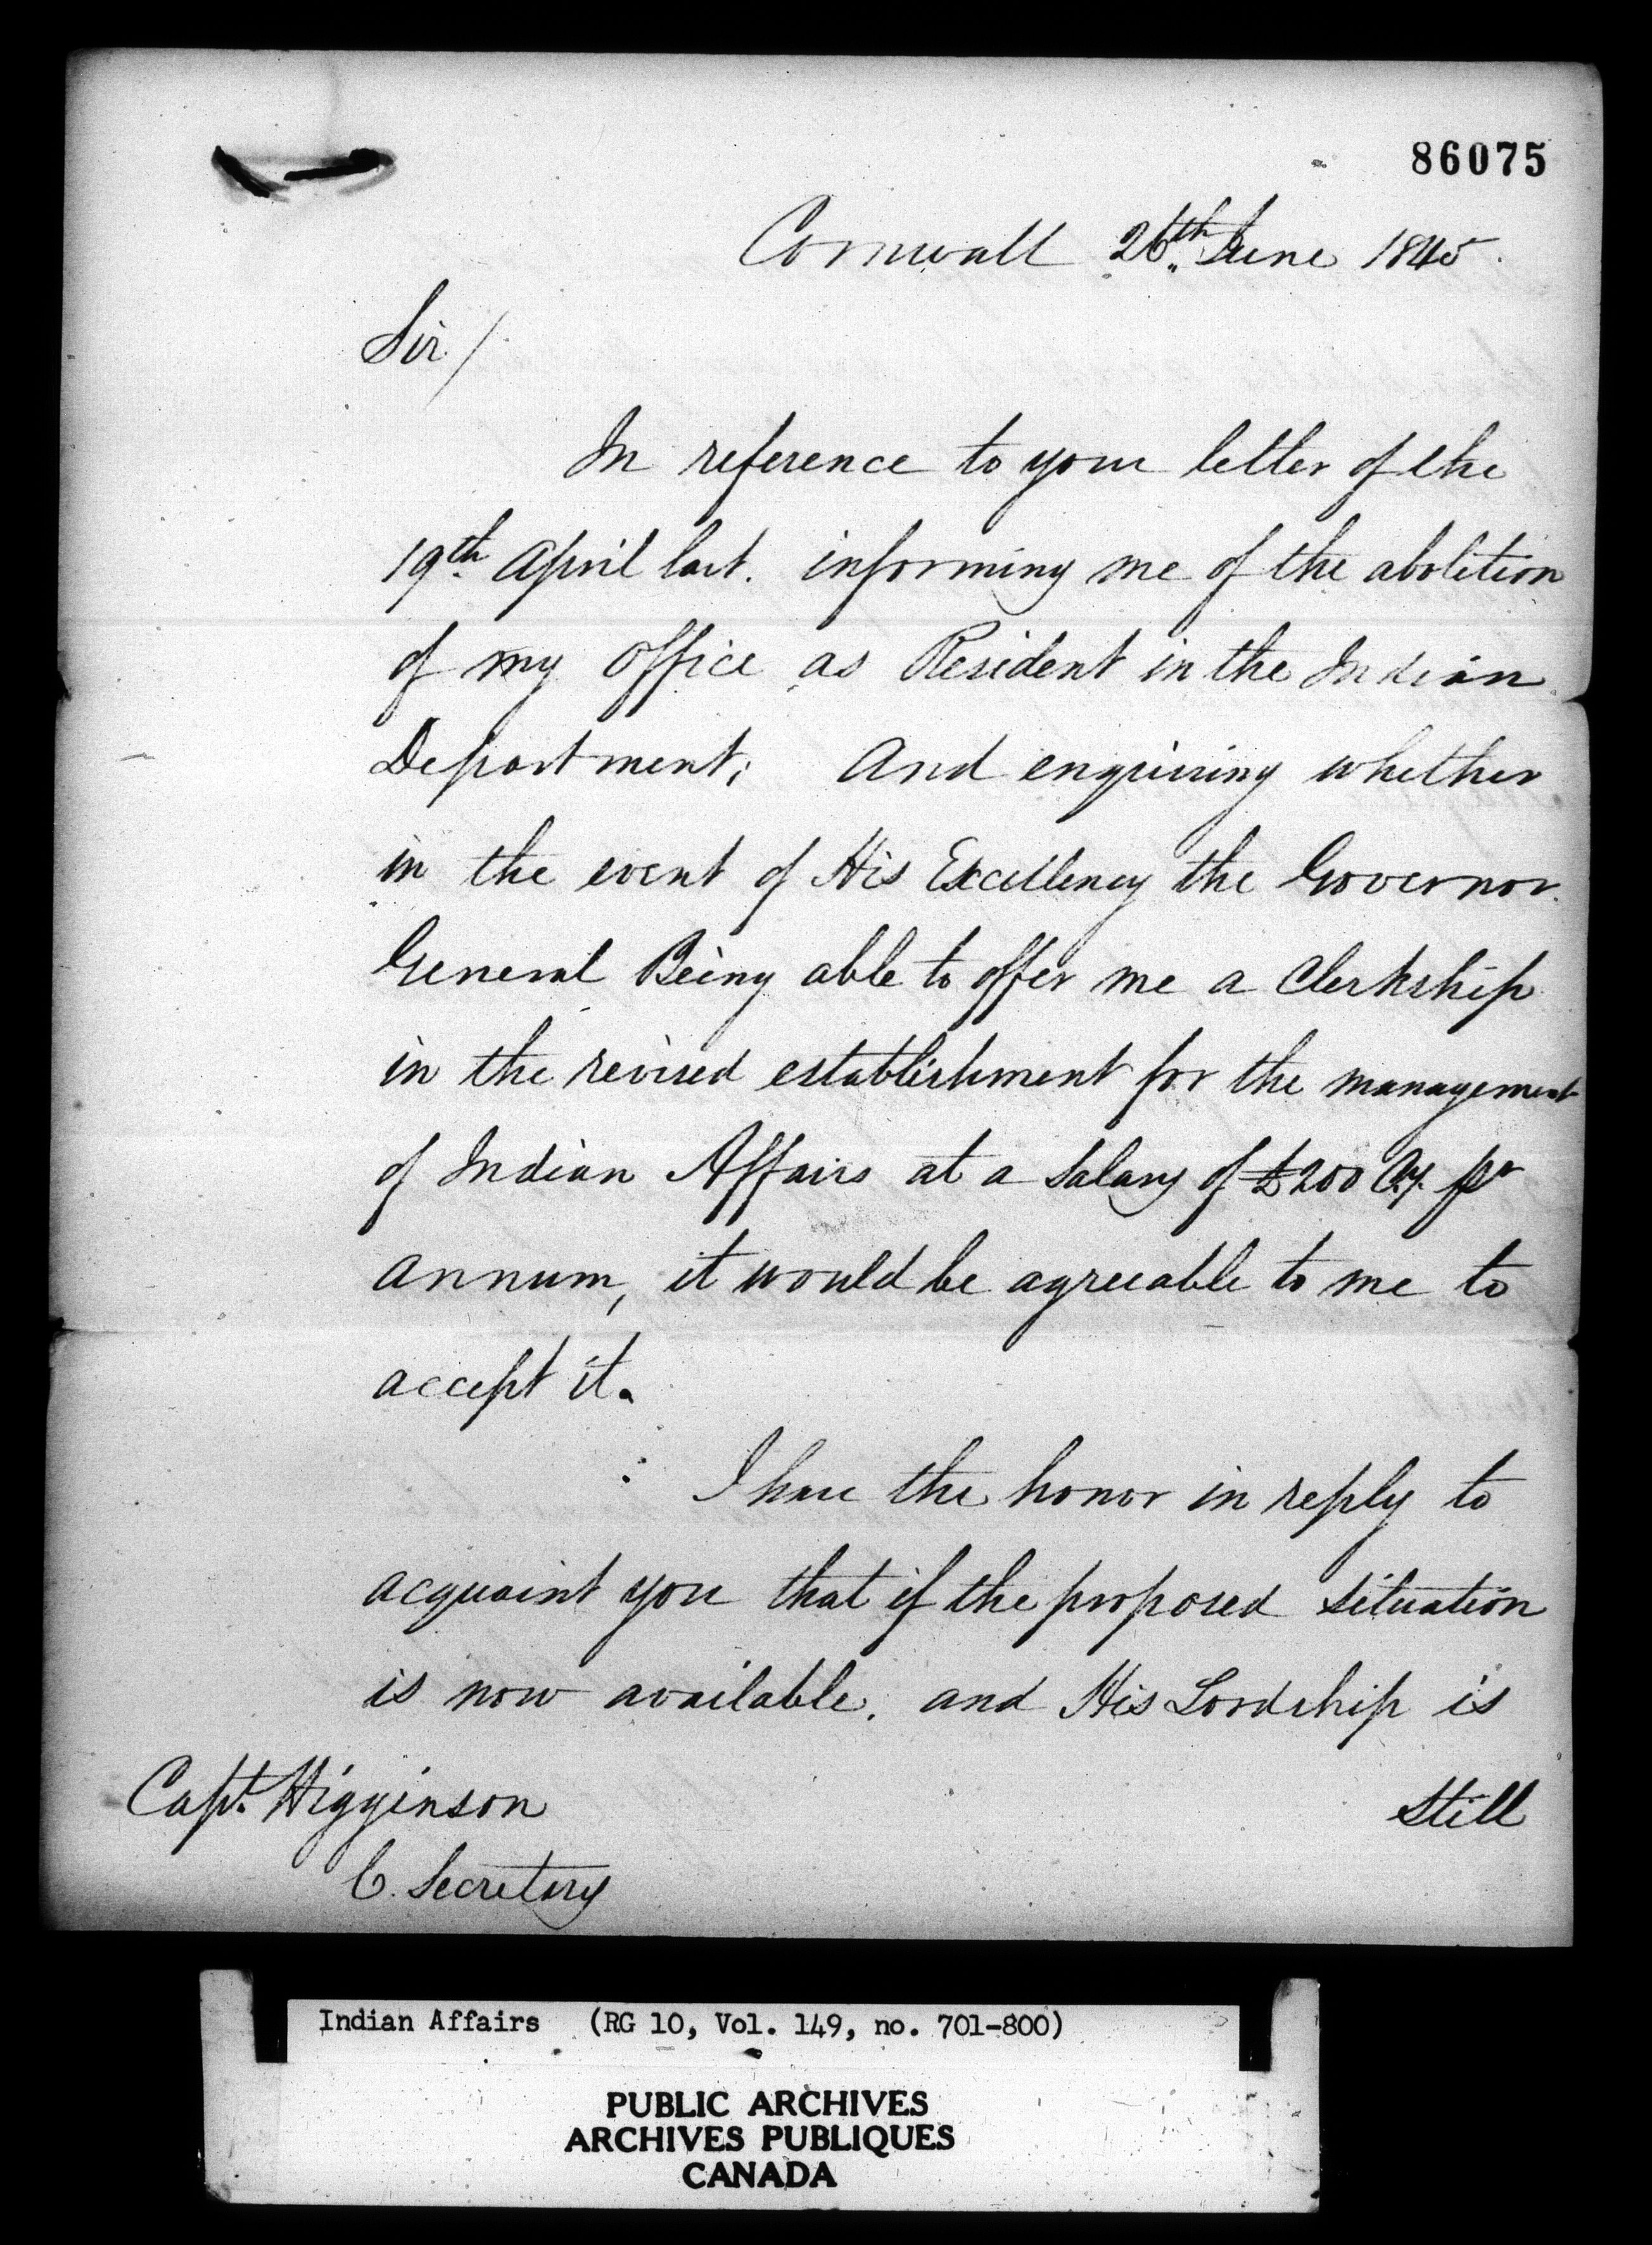 86075
Cornwall 26th June 1845.
Sir/
In reference to your letter of the
19th April last. informing me of the abolition
of my Office as Resident in the Indian
Department; And enquiring whether
in the event of His Excellency the Governor
General Being able to offer me a Clerkship
in the revised establishment for the management
of Indian Affairs at a Salary of £200 Cy. pr
annum, it would be agreeable to me to
accept it.
I have the honor in reply to
acquaint you that if the proposed situation
is now available, and His Lordship is
Still
Capt. Higginson
C. Secretary
Indian Affairs (RG 10, Vol. 149, no. 701-800)
PUBLIC ARCHIVES
ARCHIVES PUBLIQUES
CANADA